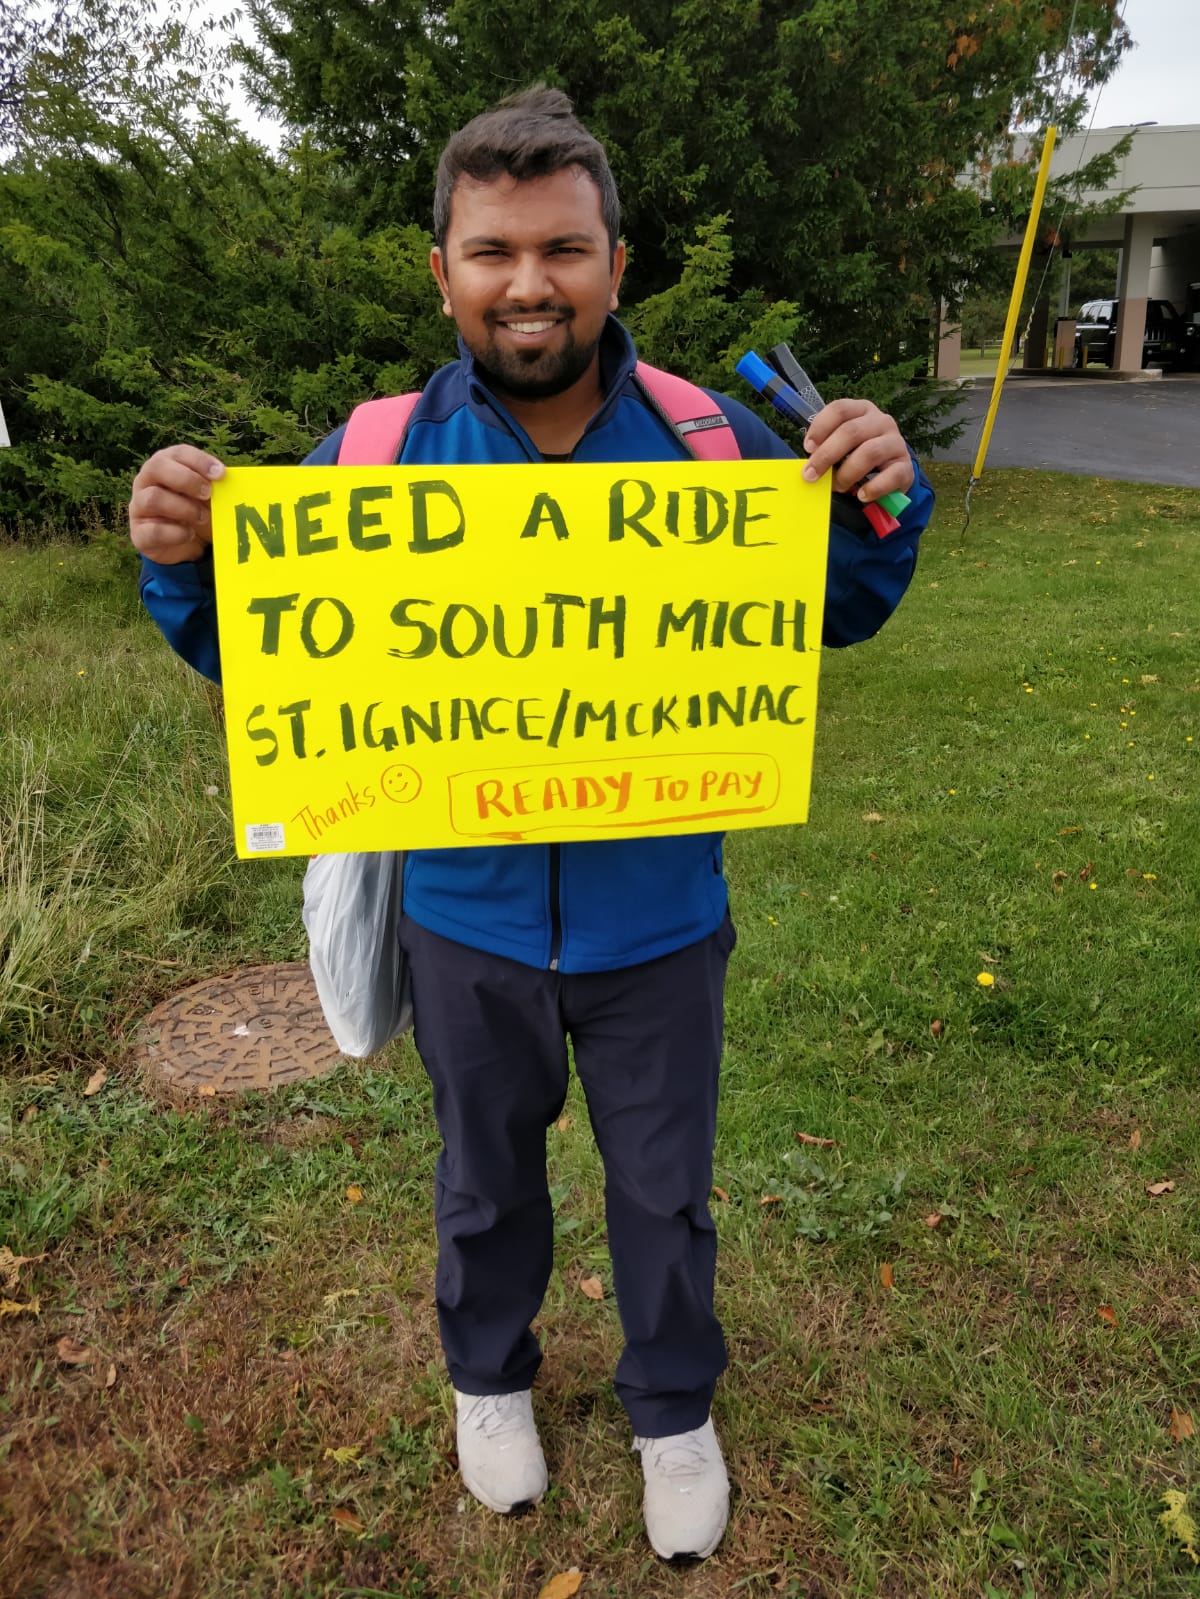 NEED A RIDE
TO SOUTH MICH.
ST. IGNACE/MCKINAC
Thanks
READY TO PAY